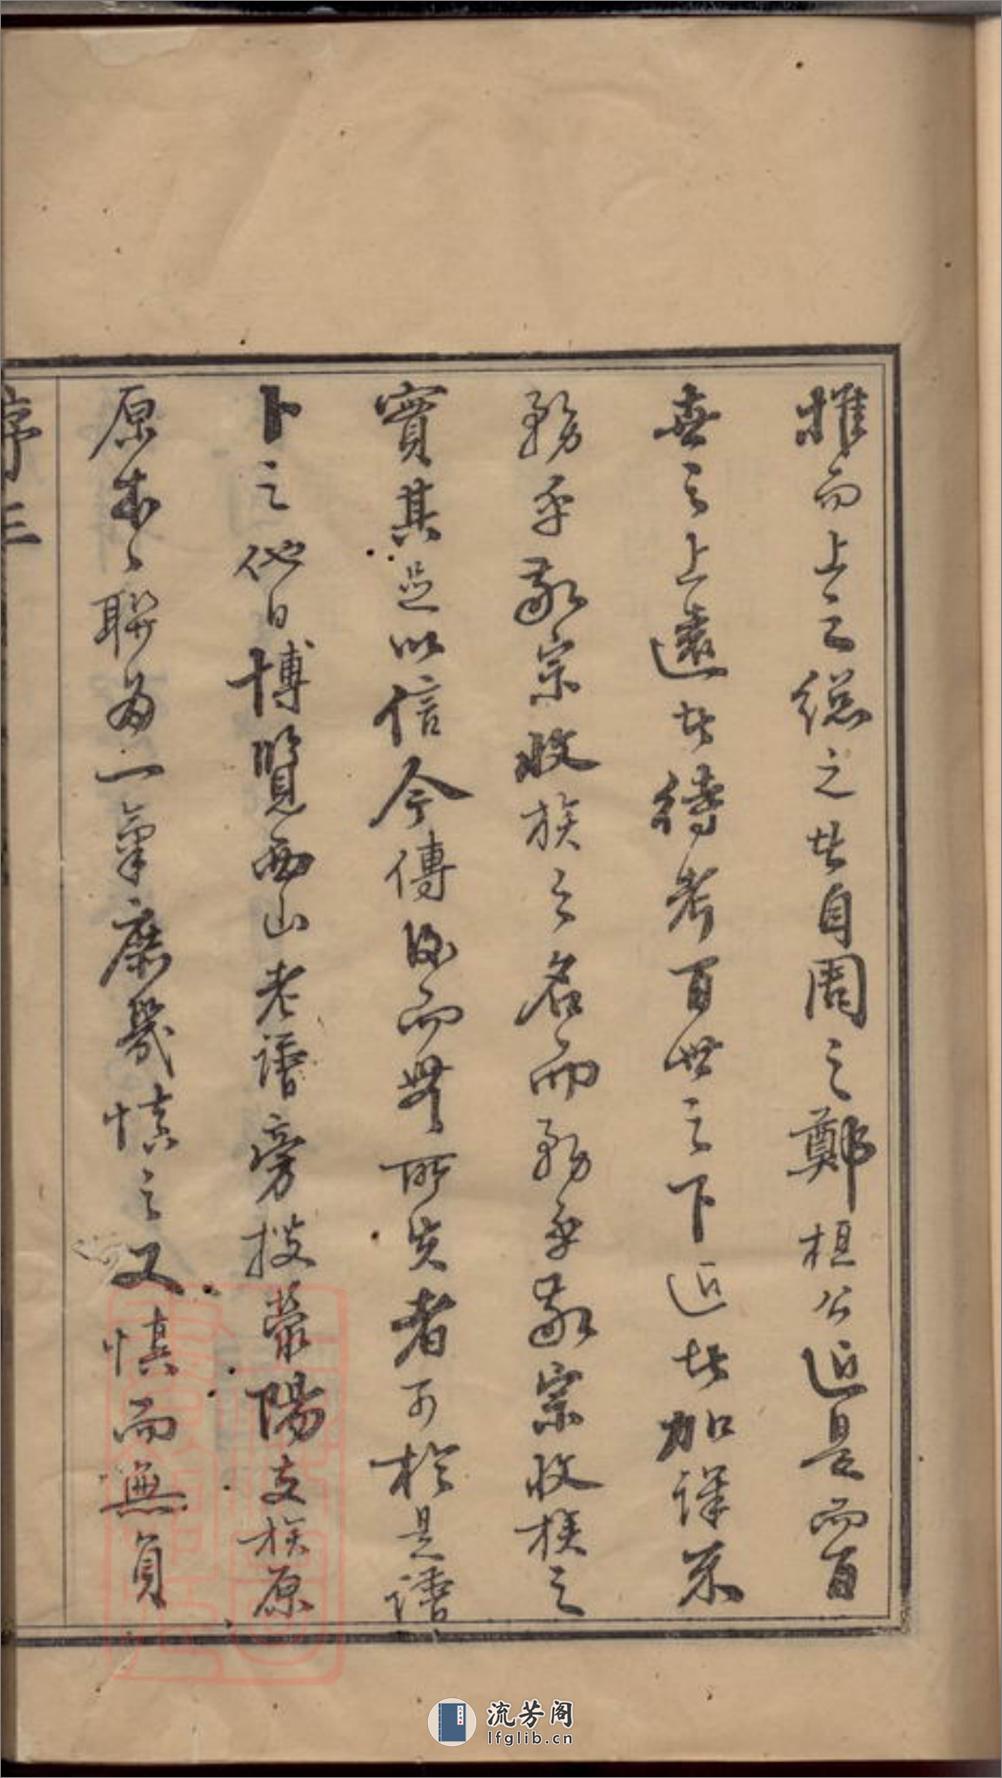 推而上之總之皆自周之鄭桓公近是而百
世之上遠者待考百世之下近者加詳不
務乎敬宗收族之名而務乎敬宗收族之
實其足以信今傳後而無所失者可於是譜
卜之他日博覽西山老譜旁搜滎陽支族原
原本本聯為一氣庶幾慎之又慎而無負
序三
流芳阁
lfglib.cn